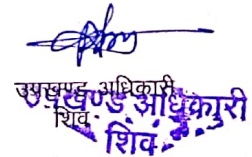 उपखण्ड अधिकारी
शिव
उपखण्ड अधिकारी
शिव